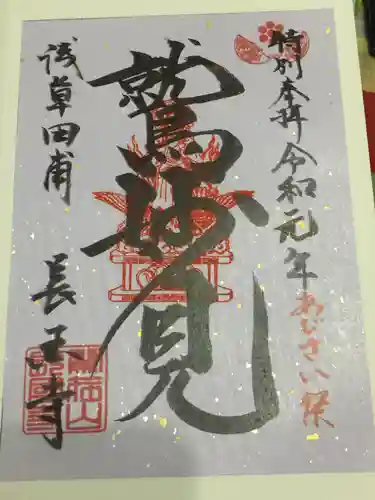 特別奉拝 令和元年
あじさい祭
鷲妙見
浅草田甫 長国寺